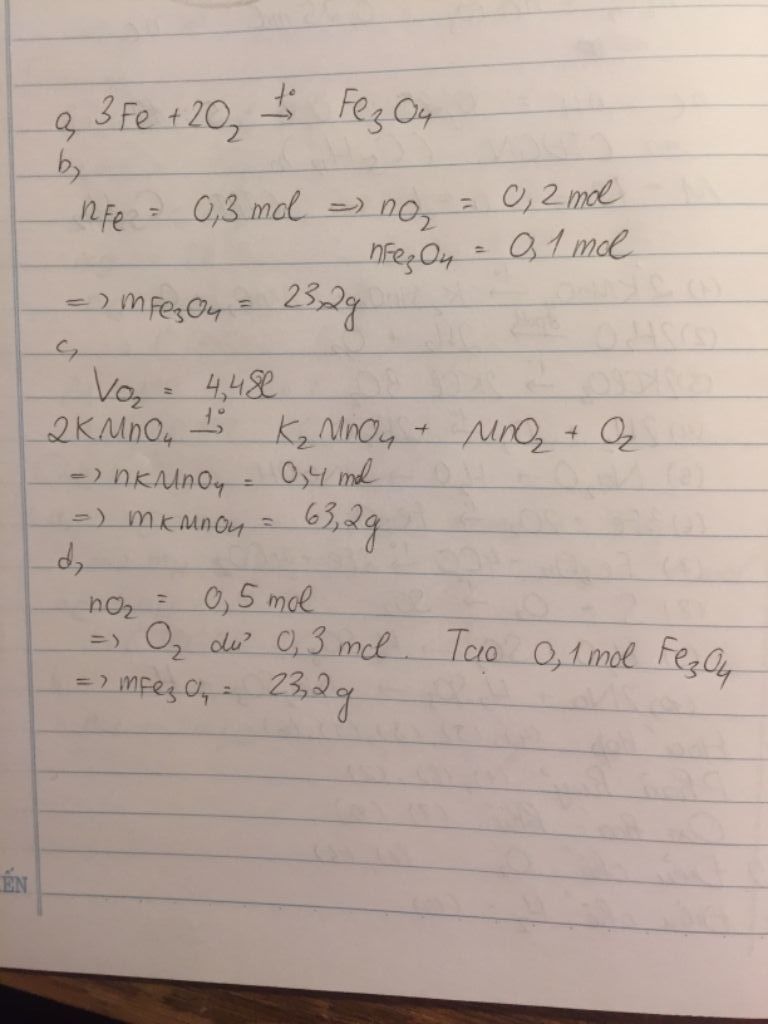 a, 3Fe + 2O₂ →(t°) Fe₃O₄
b,
nFe = 0,3 mol => nO₂ = 0,2 mol
nFe₃O₄ = 0,1 mol
=> mFe₃O₄ = 23,2g
c,
VO₂ = 4,48l
2KMnO₄ →(t°) K₂MnO₄ + MnO₂ + O₂
=> nKMnO₄ = 0,4 mol
=> mKMnO₄ = 63,2g
d,
nO₂ = 0,5 mol
=> O₂ dư 0,3 mol. Tạo 0,1 mol Fe₃O₄
=> mFe₃O₄ = 23,2g
ẾN